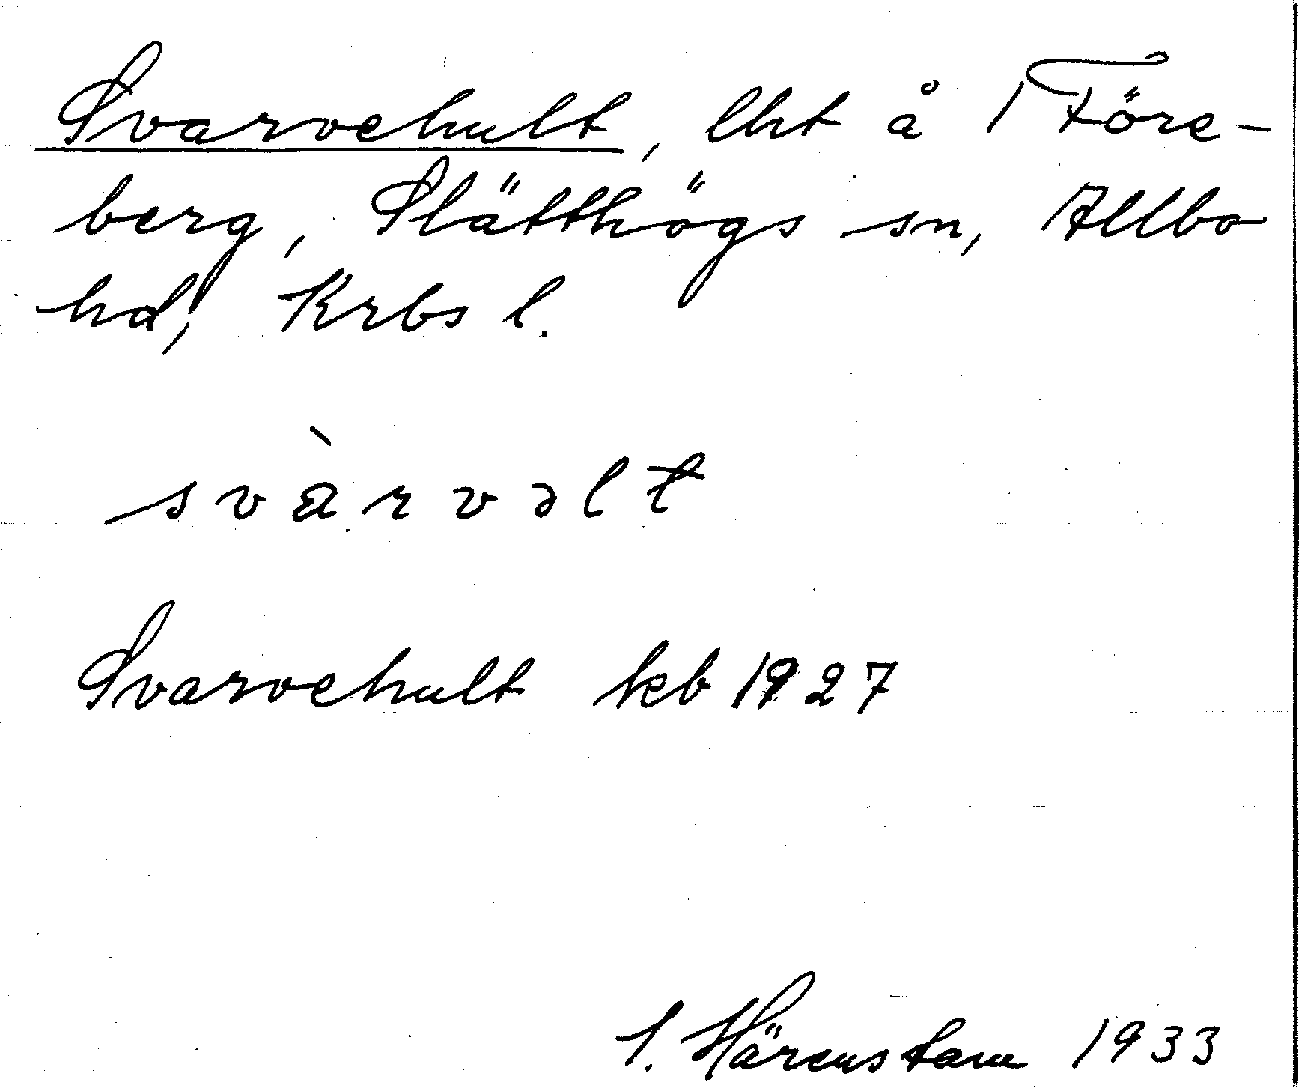 Svarvehult, lht å 1 Före-
berg, Slätthögs sn, Allbo
hd, Krbs l.
svàrvəlt
Svarvehult kb 1927
I. Härenstam 1933